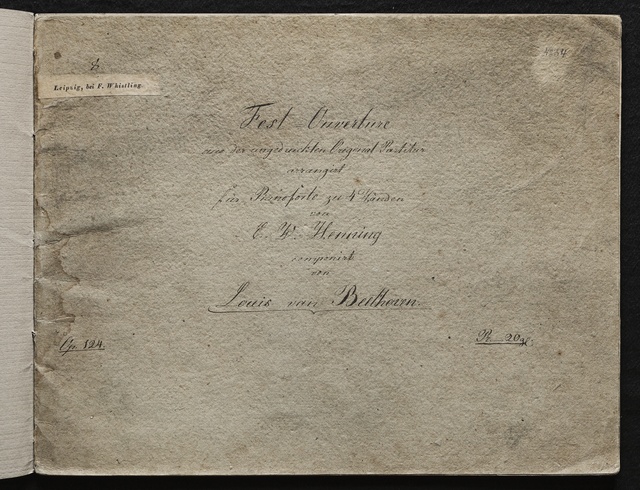 Leipzig, bei F. Whistling.
Fest-Ouverture
aus der ungedruckten Original Partitur
arrangirt
für Pianoforte zu 4 Händen
von
C. W. Henning
componirt
von
Louis van Beethoven.
Op. 124.
Pr. 20 gr.